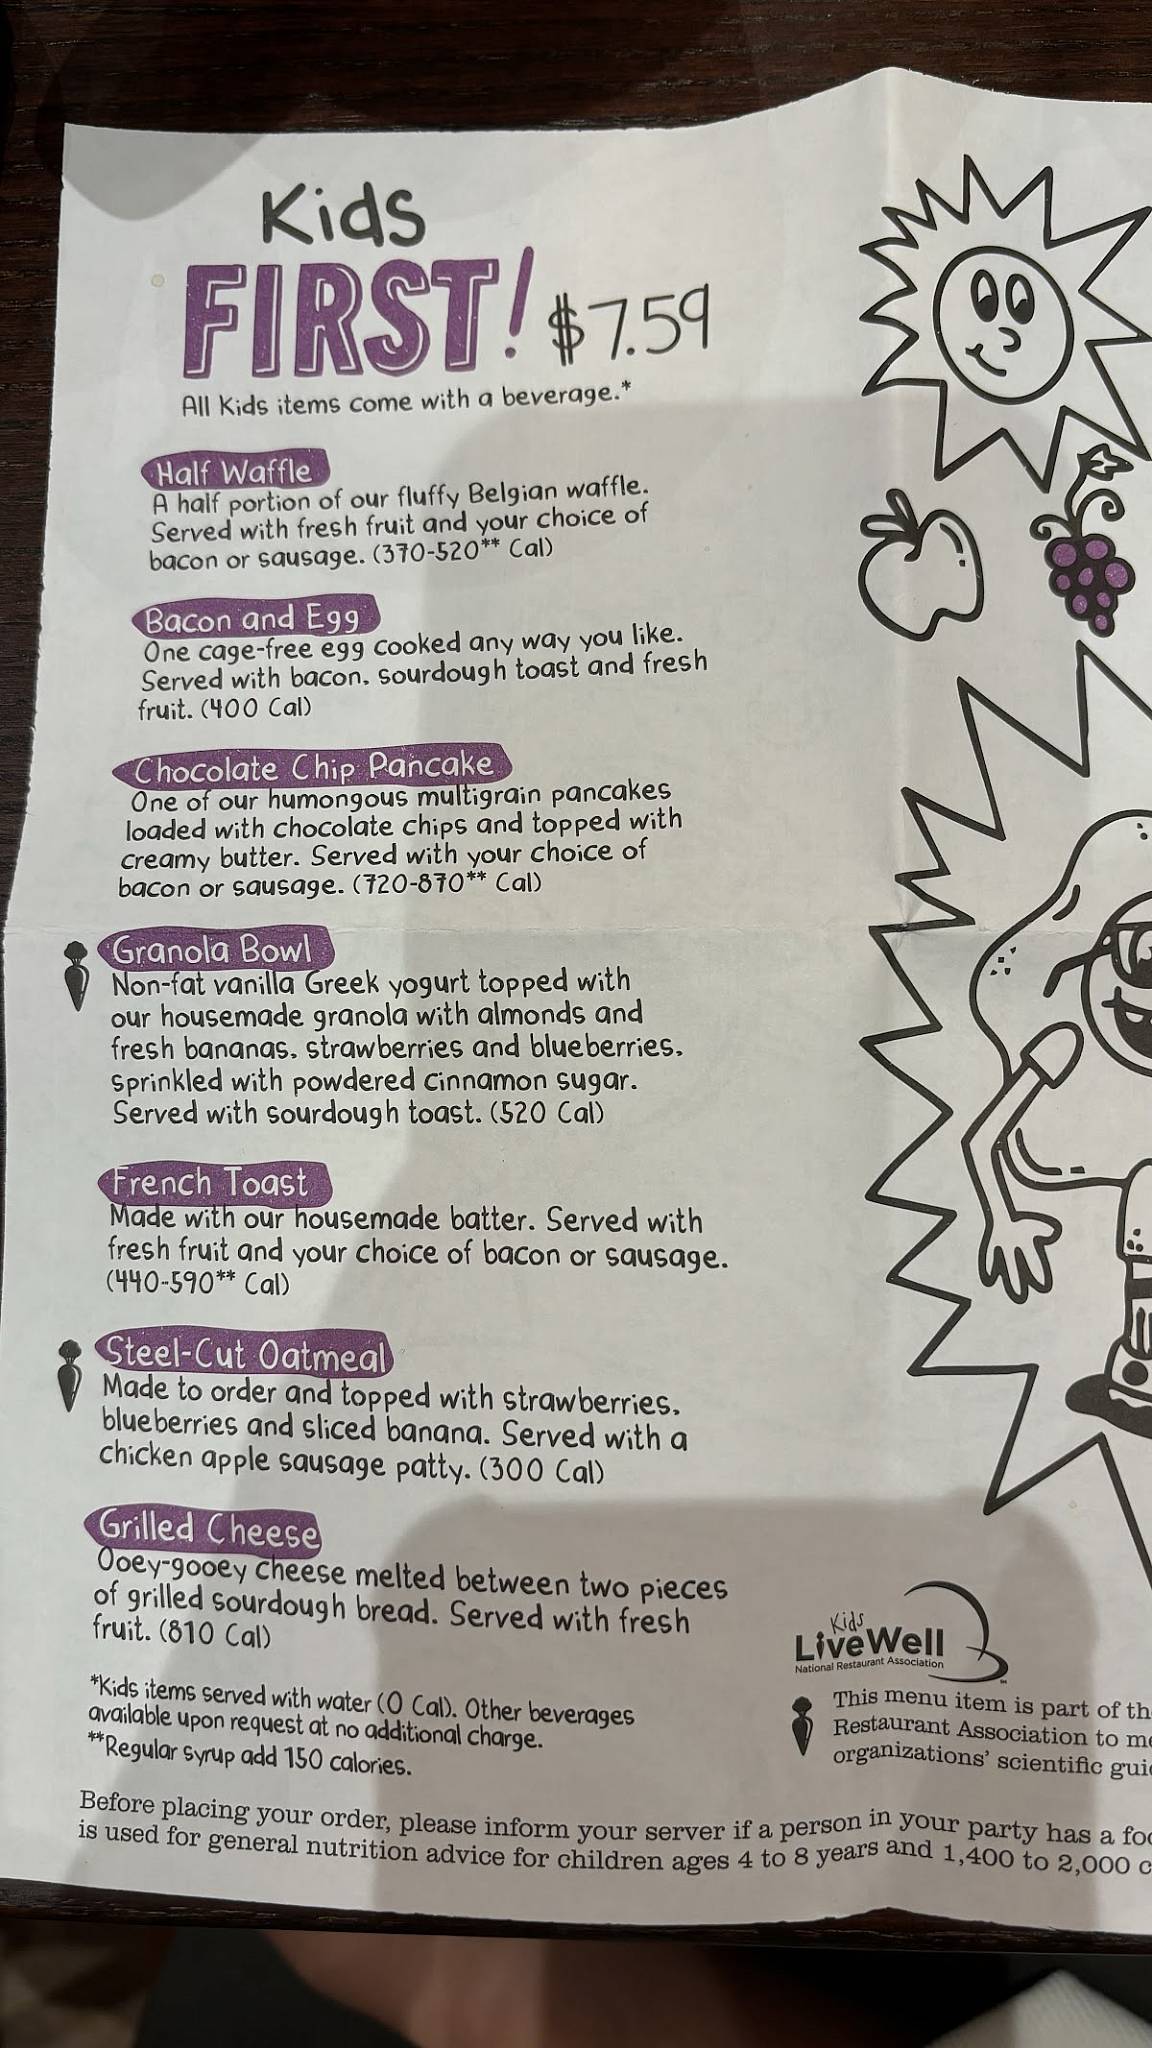 Kids
FIRST! $7.59
All Kids items come with a beverage.*
Half Waffle
A half portion of our fluffy Belgian waffle.
Served with fresh fruit and your choice of
bacon or sausage. (370-520** Cal)
Bacon and Egg
One cage-free egg cooked any way you like.
Served with bacon, sourdough toast and fresh
fruit. (400 Cal)
Chocolate Chip Pancake
One of our humongous multigrain pancakes
loaded with chocolate chips and topped with
creamy butter. Served with your choice of
bacon or sausage. (720-870** Cal)
Granola Bowl
Non-fat vanilla Greek yogurt topped with
our housemade granola with almonds and
fresh bananas, strawberries and blueberries,
sprinkled with powdered cinnamon sugar.
Served with sourdough toast. (520 Cal)
French Toast
Made with our housemade batter. Served with
fresh fruit and your choice of bacon or sausage.
(440-590** Cal)
Steel-Cut Oatmeal
Made to order and topped with strawberries,
blueberries and sliced banana. Served with a
chicken apple sausage patty. (300 Cal)
Grilled Cheese
Ooey-gooey cheese melted between two pieces
of grilled sourdough bread. Served with fresh
fruit. (810 Cal)
*Kids items served with water (0 Cal). Other beverages
available upon request at no additional charge.
**Regular syrup add 150 calories.
Kids
LiveWell
National Restaurant Association
This menu item is part of th
Restaurant Association to me
organizations' scientific gui
Before placing your order, please inform your server if a person in your party has a foo
is used for general nutrition advice for children ages 4 to 8 years and 1,400 to 2,000 c